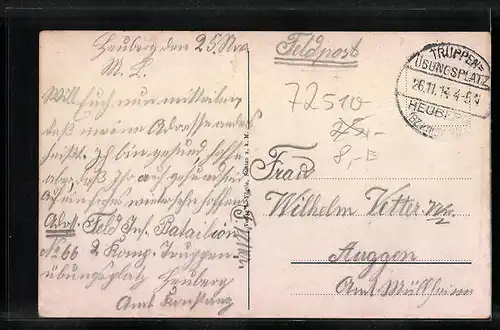 Heuberg den 25. Nov
M. L.
Will Euch nun mitteilen
daß meine Adresse anders
heißt. Ich bin gesund hoffe
aber, daß Ihr auch gesund seid
Auf ein frohes wiedersehn hoffend
Adrs. Feld Inf. Batailion
No 66 2 Komp. Truppen
übungsplatz Heuberg
Amt
Feldpost
TRUPPEN=
ÜBUNGSPLATZ
26.11.14. 4-5 N
HEUBERG
72510
8,-E
Frau
Wilhelm Vetter Ww.
Auggen
Amt Müllheim